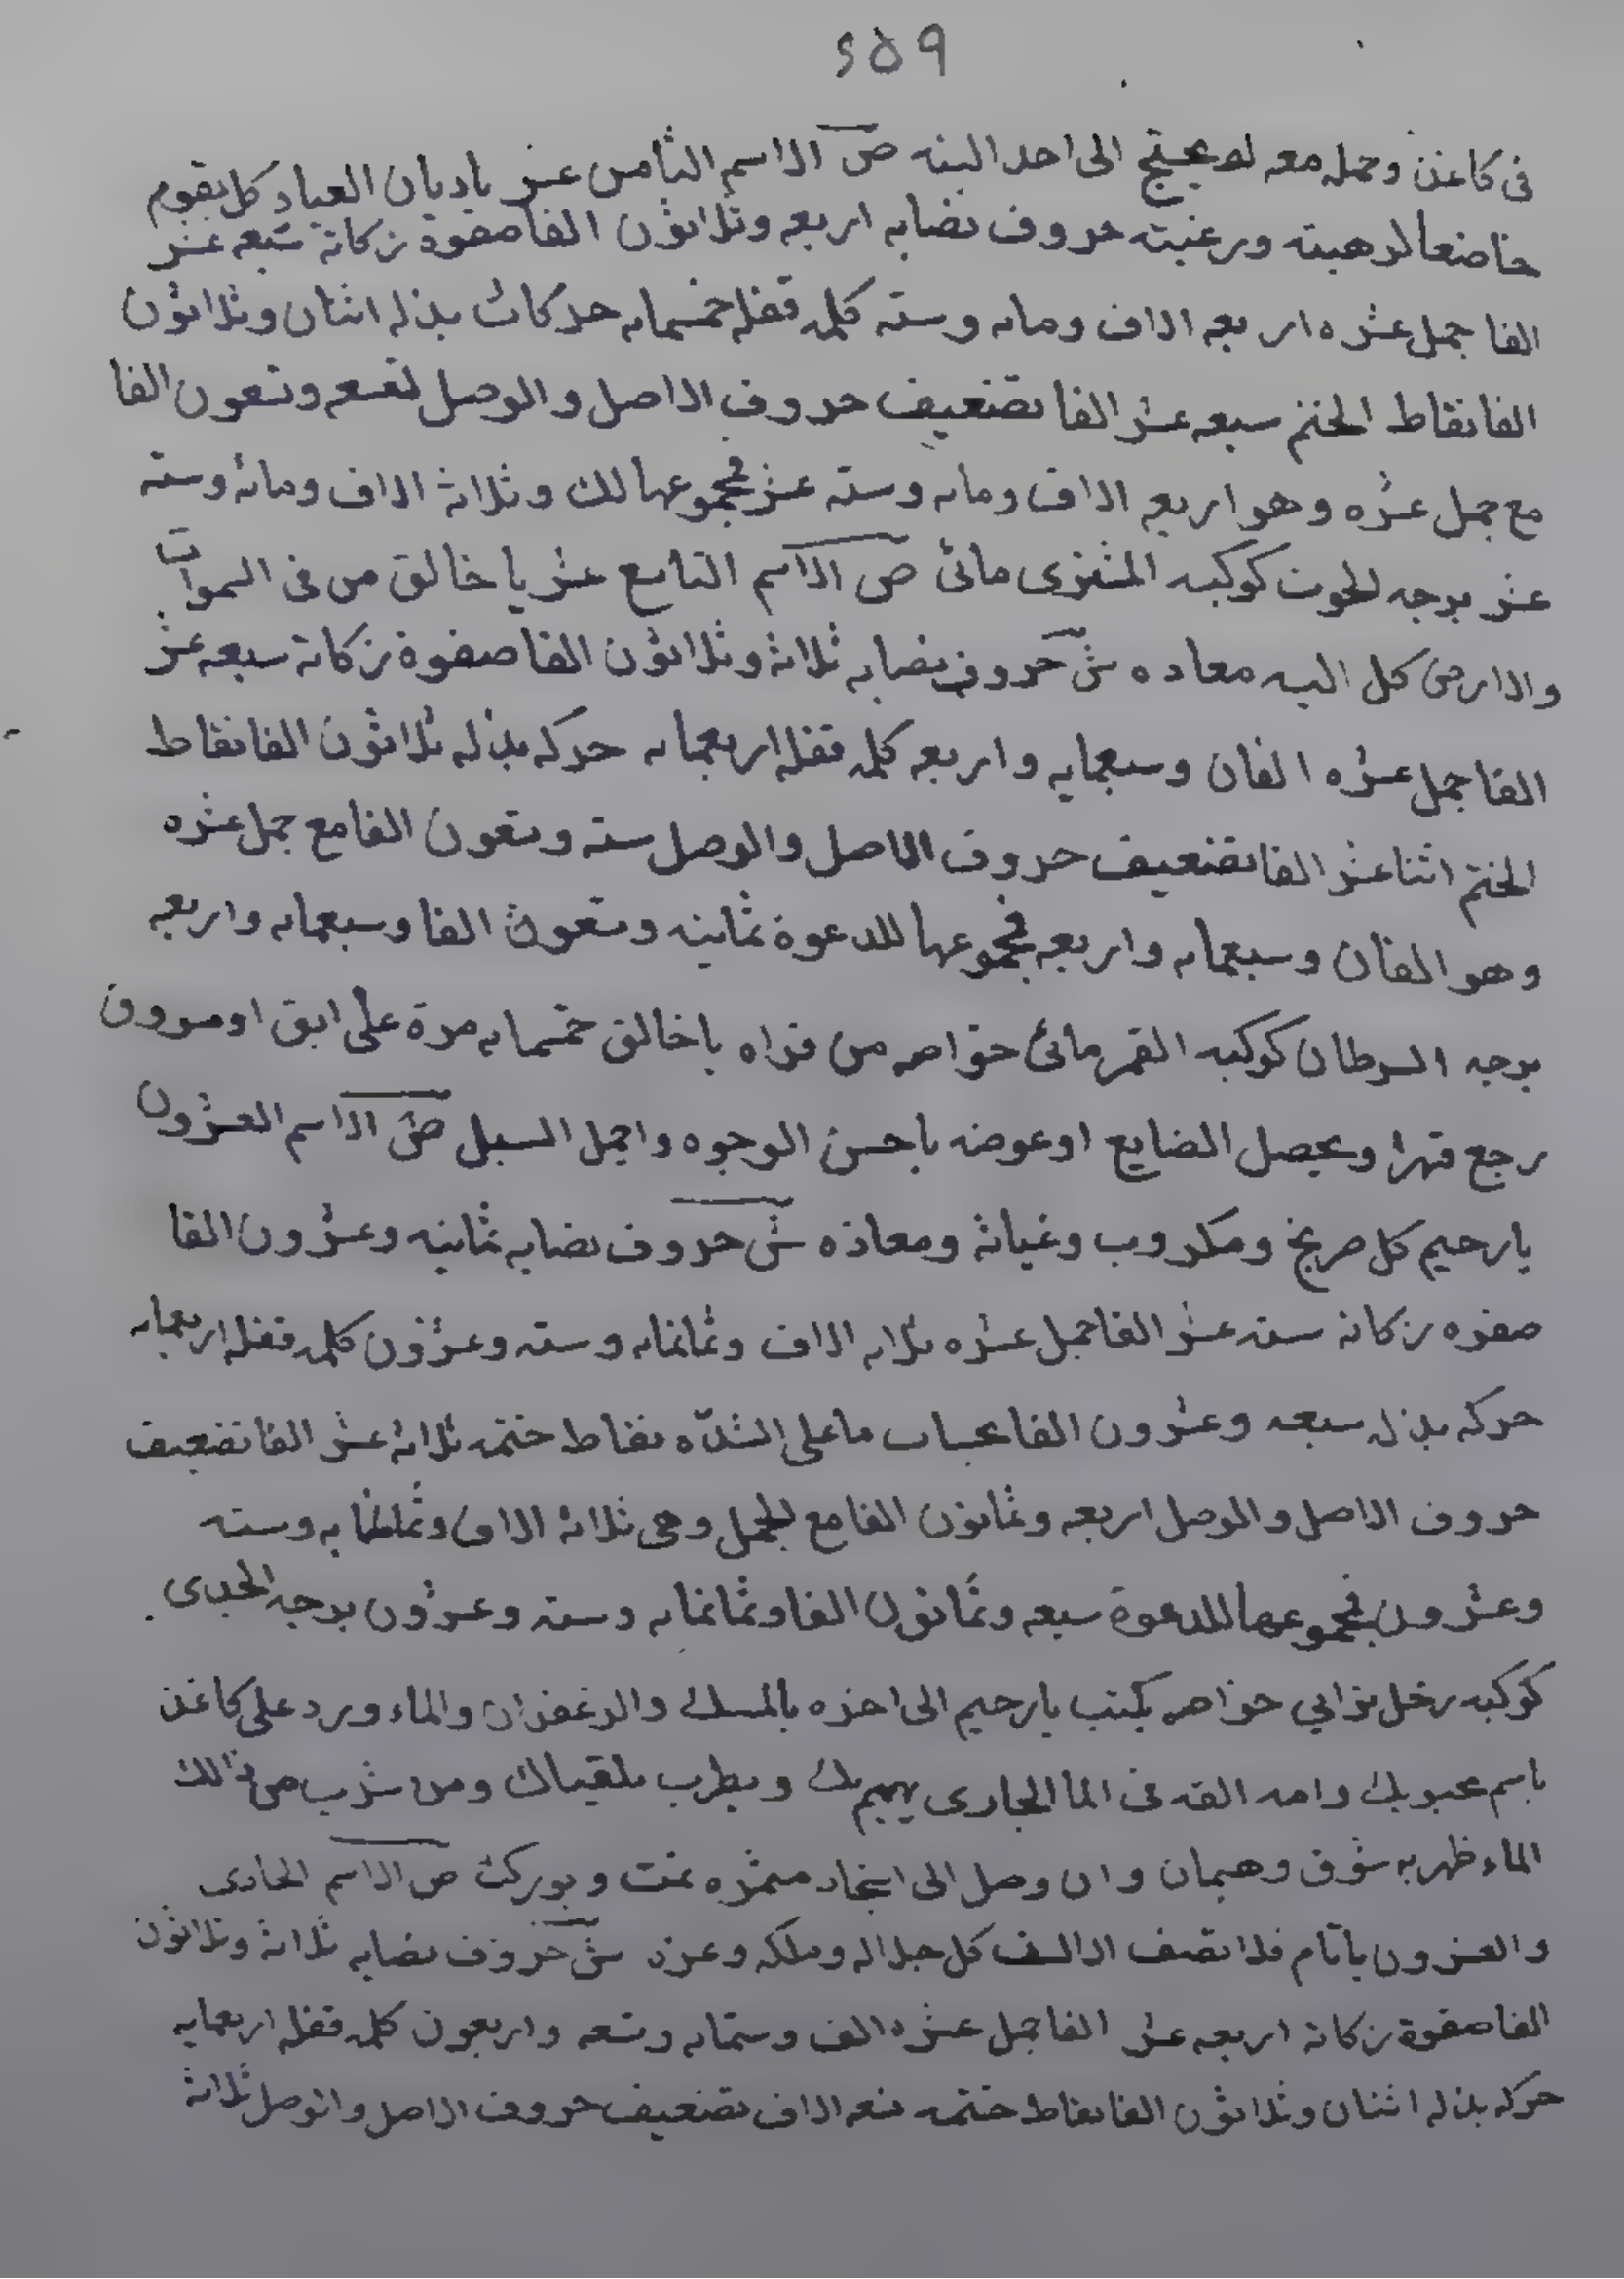 ٢٥٩
فى كاغذ وحمله معه لم يحتج الى احد البته ص الاسم الثامن عشر ياديان العباد كل يقوم
خاضعا لرهبته ورغبته حروف نصابه اربعه وثلاثون الفا صفوة زكاته سبعه عشر
الفا جمل عشره اربعه الاف ومايه وسته كلمه قفله خمسمايه حركات بذله اثنان وثلاثون
الفا نقاط الختم سبعه عشر الفا تضعيف حروف الاصل والوصل تسعه وتسعون الفا
مع جمل عشره وهو اربعه الاف ومايه وسته عشر فمجموعها لك وثلاثة الاف ومائه وسته
عشر برجه الحوت كوكبه المشترى مائى ص الاسم التاسع عشر يا خالق من فى السموات
والارض كل اليه معاده ش حروف نصابه ثلاثة وثلاثون الفا صفوة زكاته سبعه عشر
الفا جمل عشره الفان وسبعمايه واربعه كلمه قفله اربعمايه حركه بذله ثلاثون الفا نقاط
الختم اثنا عشر الفا تضعيف حروف الاصل والوصل سته وتسعون الفا مع جمل عشره
وهو الفان وسبعمايه واربعه فمجموعها للدعوة ثمانيه وتسعون الفا وسبعمايه واربعه
برجه السرطان كوكبه القمر مائى خواصه من قراه يا خالق خمسمايه مرة على ابق او مسروق
رجع قهرا ويحصل الضايع او عوضه باحسن الوجوه واجمل السبل ص الاسم العشرون
يا رحيم كل صريخ ومكروب وغياثه ومعاذه ش حروف نصابه ثمانيه وعشرون الفا
صفوه زكاته سته عشر الفا جمل عشره ثلاثه الاف وثمانمايه وسته وعشرون كلمه قفله اربعمايه
حركه بذله سبعه وعشرون الفا بحساب ما على الشدّه نقاط ختمه ثلاثة عشر الفا تضعيف
حروف الاصل والوصل اربعه وثمانون الفا مع الجمل وهى ثلاثة الاف وثمانمايه وسته
وعشرون فمجموعها للدعوة سبعه وثمانون الفا وثمانمايه وسته وعشرون برجه الجدى
كوكبه زحل ترابي خواصه يكتب يا رحيم الى اخره بالمسك والزعفران والماء ورد على كاغذ
باسم محبوبك وامه القه فى الما الجارى يهيم بك ويطرب بلقياك ومن شرب من ذالك
الماء ظهر به شوق وهيمان وان وصل الى اشجار مثمره نمت وبوركت ص الاسم الحادى
والعشرون يا تام فلا تصف الالسن كل جلاله وملكه وعزه ش حروف نصابه ثلاثة وثلاثون
الفا صفوة زكاته اربعه عشر الفا جمل عشره الف وستمايه وتسعه واربعون كلمه قفله اربعمايه
حركه بذله اثنان وثلاثون الفا نقاط ختمه تسعه الاف تضعيف حروف الاصل والوصل ثلاثة